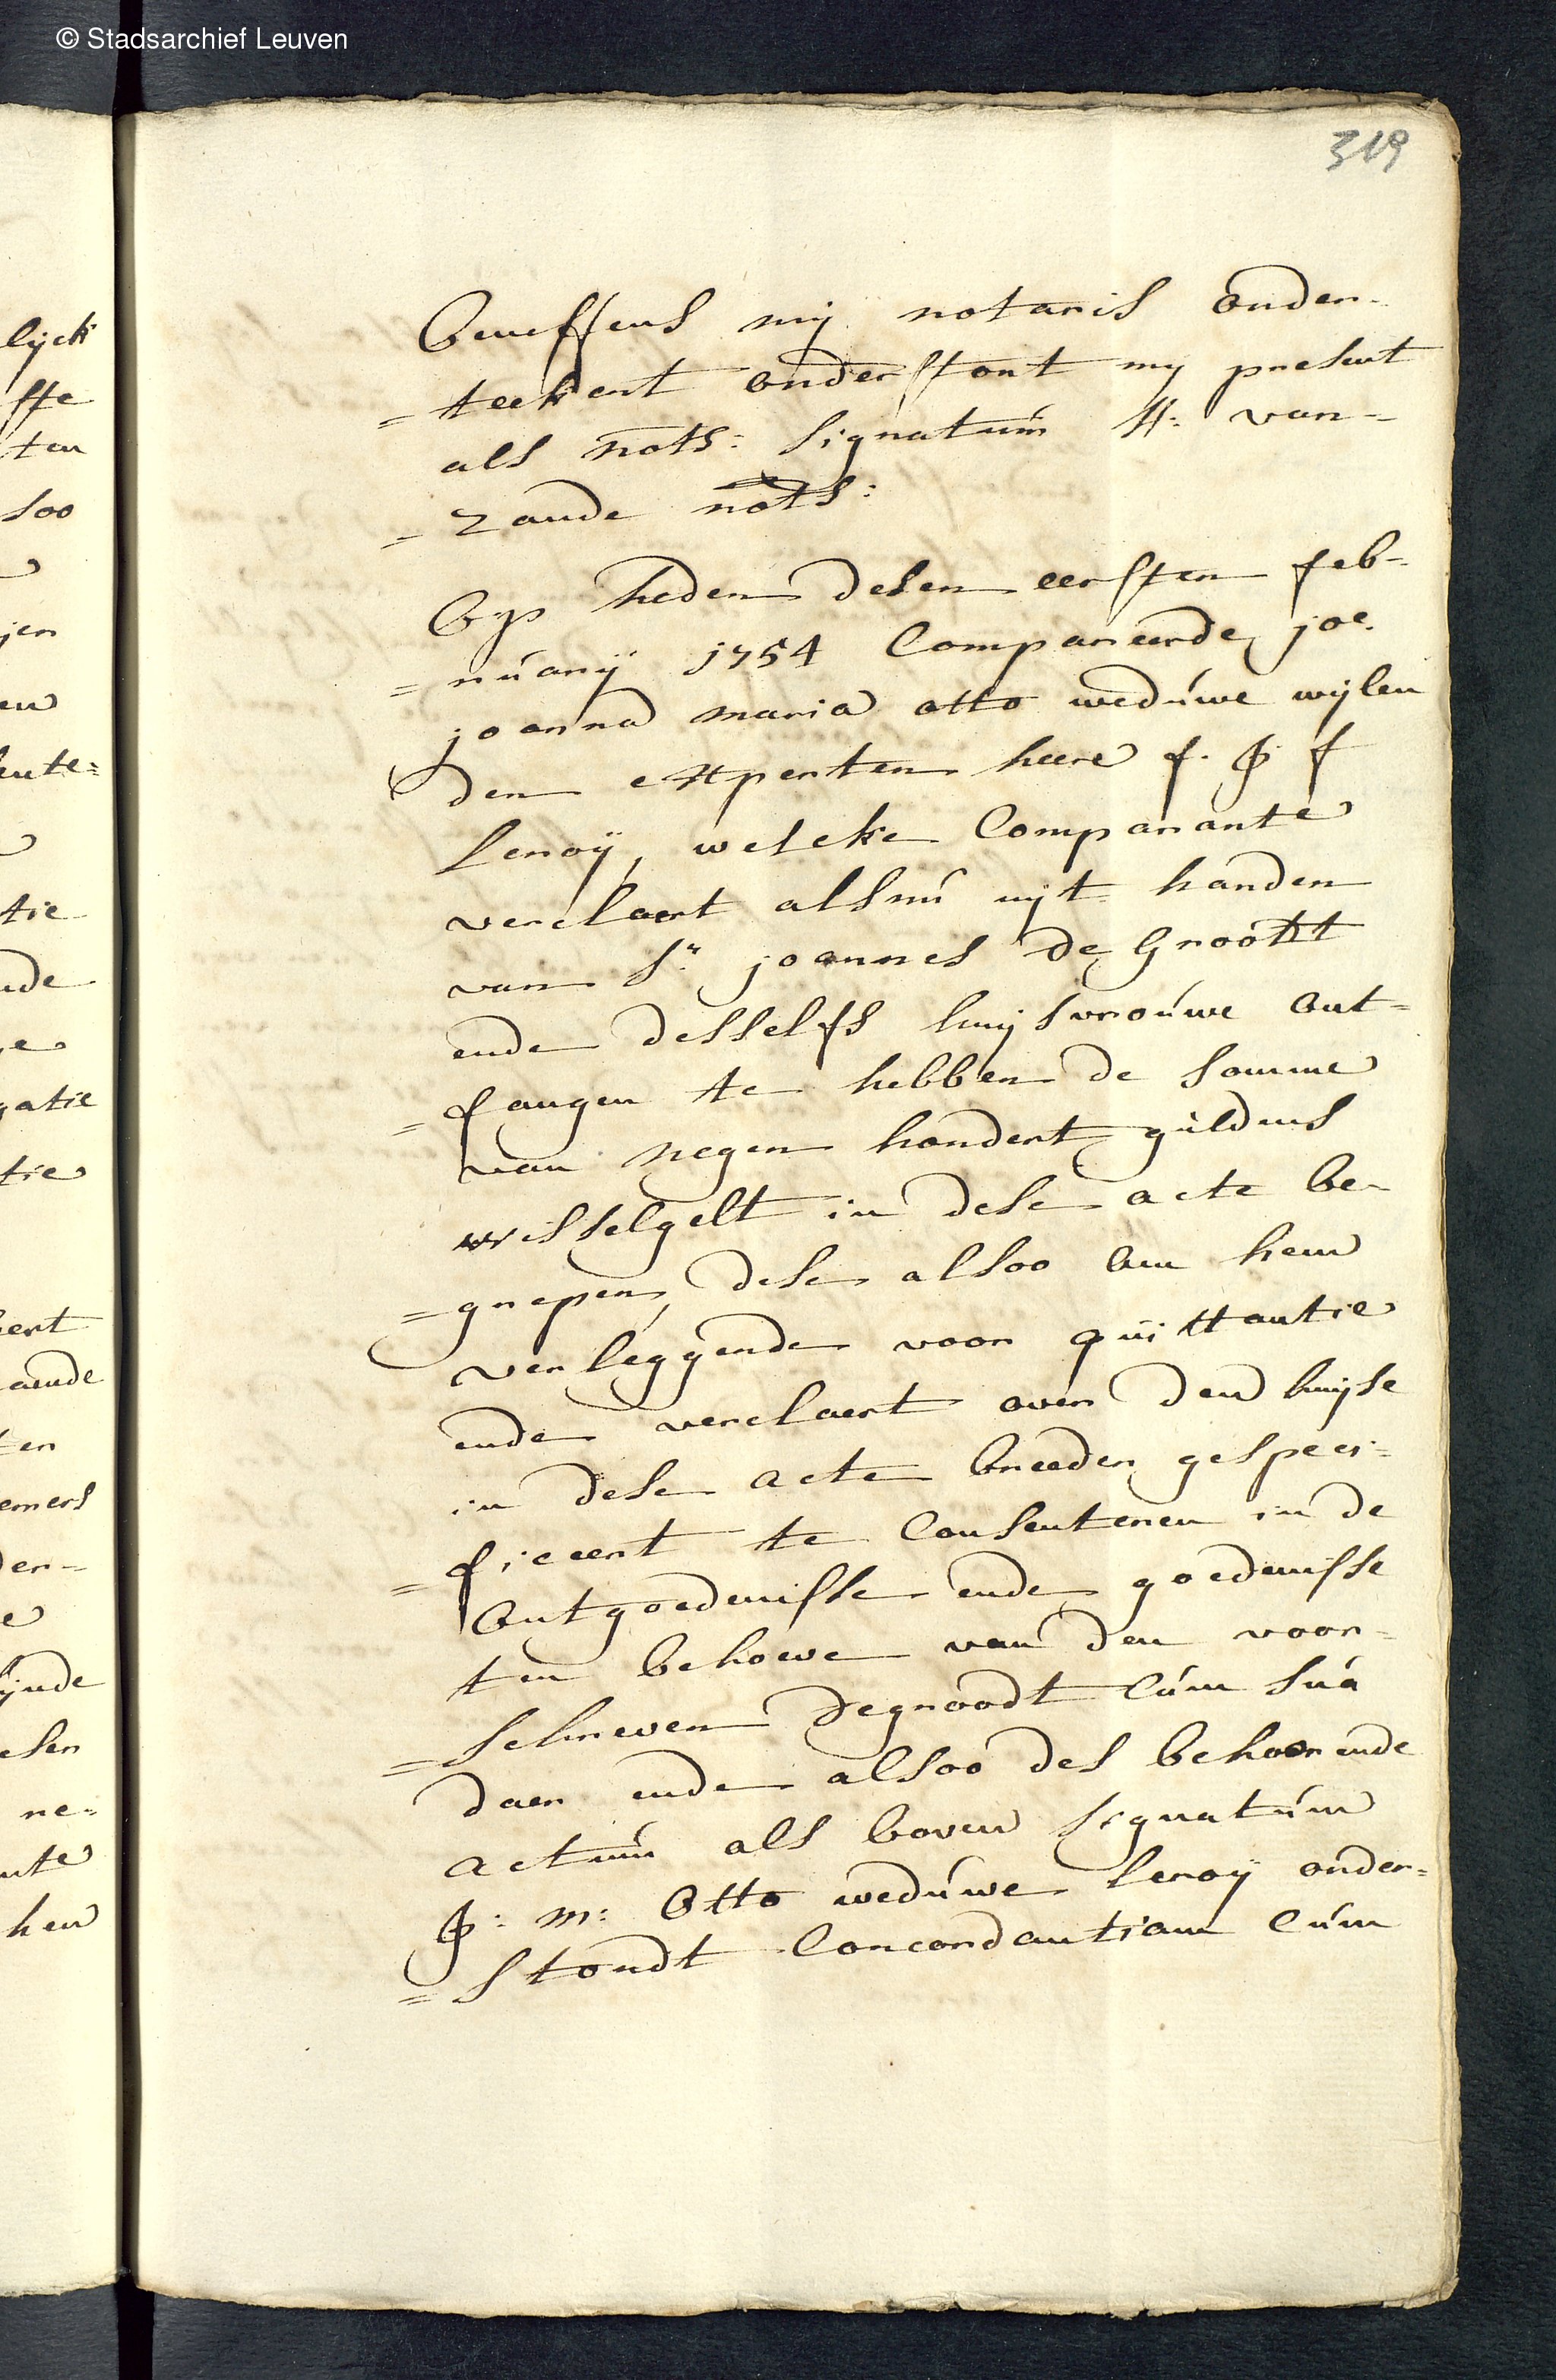 © Stadsarchief Leuven
319
lijck
ffe
ten
soo
jen
en
ente=
tie
nde
e
gatie
tie
bert
aende
ten
emers
der=
e
ijnde
esen
ne=
nte
hen
Beneffens mij notaris onder-
=teekent onderstont my present
als nots: signatúm H: van-
=zande nots:
Op heden desen eersten feb-
=rúarÿ 1754 Compareerde joe.
joanna maria otto wedúwe wijlen
den experten heere f. J: f
Leroÿ, welcke Comparante
verclaert alsnú uÿt handen
van Sr. joannes De Groodt
ende desselfs huijsvroúwe ont=
=fangen te hebben de somme
van negen hondert guldens
wisselgelt in dese acte be-
=grepen, dese alsoo aen hem
verleggende voor quittantie
ende verclaert over den huijse
in dese acte breeder gespeci=
=ficeert te Consenteren in de
ontgoedenisse ende goedenisse
ten behoeve van den voor=
=schreven Degroodt Cúm súa
daer ende alsoo des behoorende
actúm als boven signatúm
J: m: Otto wedúwe Leroÿ onder=
=stondt Concordantiam Cúm